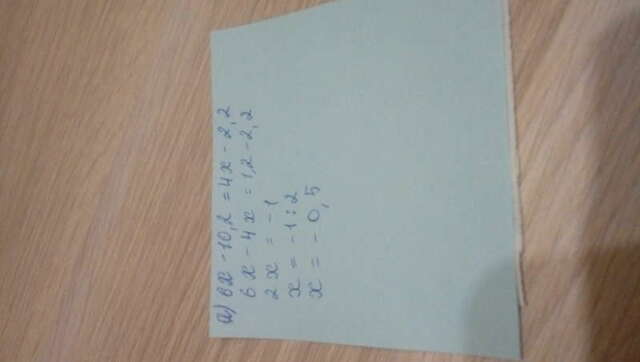 а) 6x - 10,2 = 4x - 2,2
6x - 4x = 1,2 - 2,2
2x = -1
x = -1 : 2
x = -0,5